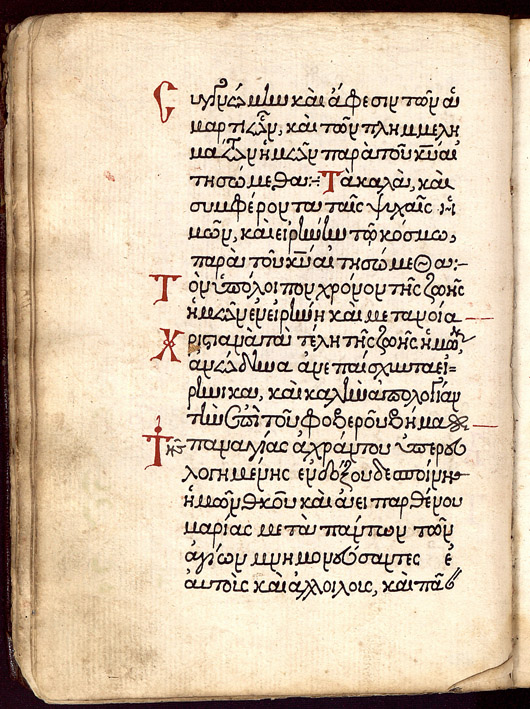 Συγγνώμην καὶ ἄφεσιν τῶν ἁ
μαρτιῶν, καὶ τῶν πλημμελη
μάτων ἡμῶν παρὰ τοῦ κῡ αἰ
τησόμεθα:- Τὰ καλὰ, καὶ
συμφέροντα ταῖς ψυχαῖς ἡ
μῶν, καὶ εἰρήνην τῷ κόσμω,
παρὰ τοῦ κῡ αἰτησόμεθα:-
Τὸν ὑπόλοιπον χρόνον τῆς ζωῆς
ἡμῶν ἐν εἰρήνη καὶ μετανοία
Χριστιανὰ τὰ τέλη τῆς ζωῆς ἡμῶν,
ἀνώδυνα ἀνεπαίσχυντα εἰ=
ρηνικα, καὶ καλὴν ἀπολογίαν
τὴν ἐπὶ τοῦ φοβεροῦ βήμα
Τῆς παναγίας ἀχράντου ὑπερευ
λογημένης ἐνδόξου δεσποίνης
ἡμῶν θκου καὶ ἀειπαρθένου
μαρίας μετὰ πάντων τῶν
ἁγίων μνημονεύσαντες ἑ
αυτοὶς καὶ ἀλλοίλοις, καὶ πᾶσ